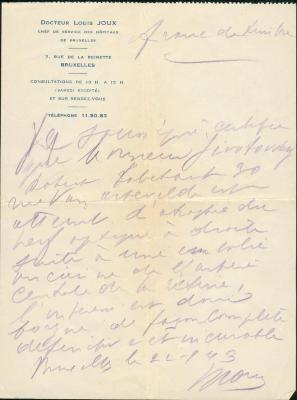 DOCTEUR LOUIS JOUX
CHEF DE SERVICE DES HÔPITAUX
DE BRUXELLES
7, RUE DE LA REINETTE
BRUXELLES
CONSULTATIONS DE 13 H. A 15 H.
(SAMEDI EXCEPTÉ)
ET SUR RENDEZ-VOUS
TÉLÉPHONE 11.90.82
Je soussigné, certifie
que Monsieur
Robert habitant 30
rue Van Artevelde est
atteint d'atrophie du
nerf optique à droite
suite à une embolie
ancienne de l'artère
centrale de la rétine,
L'intéressé est donc
borgne de façon complète
définitive et incurable
Bruxelles le 22-1-43
Joux